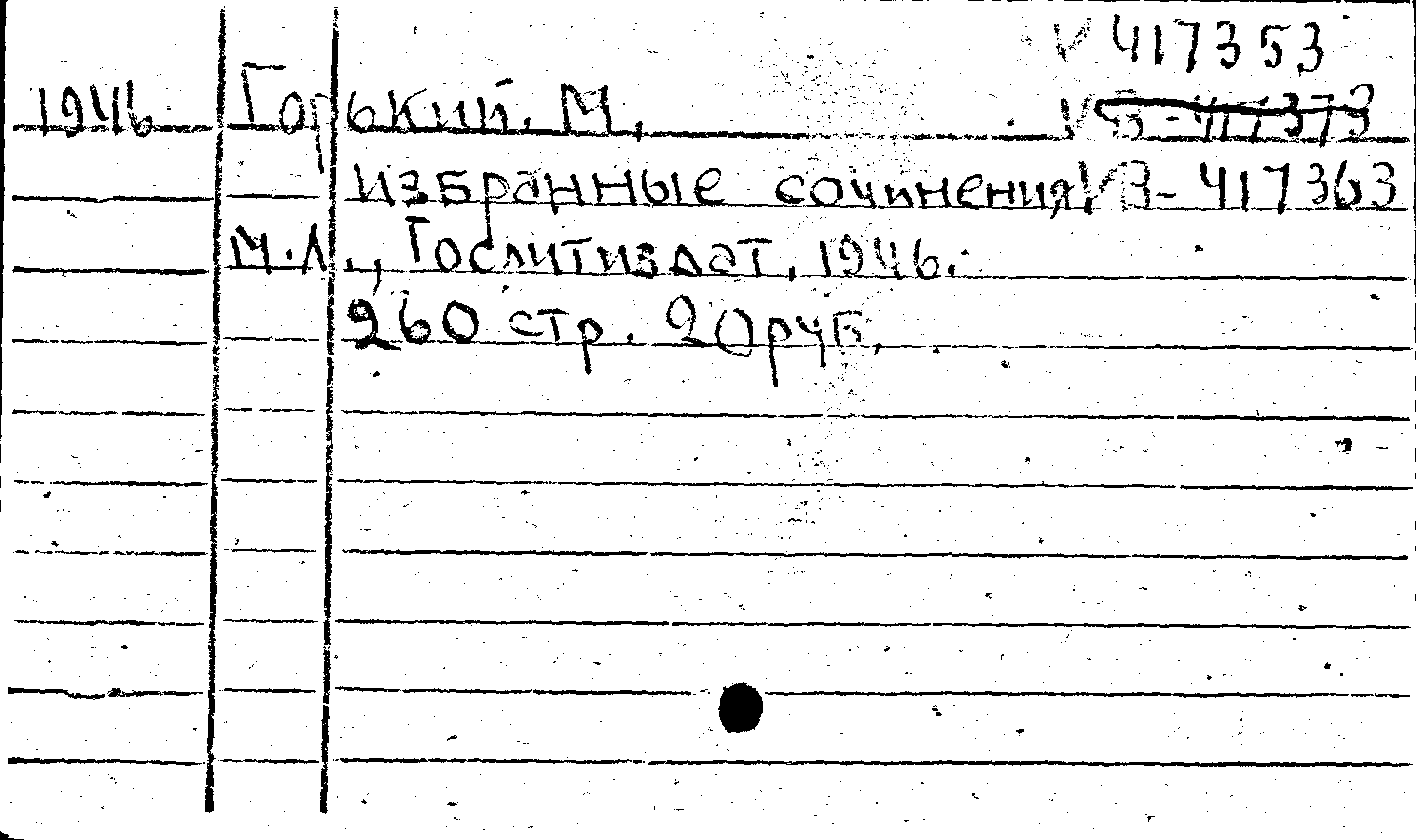 V 417353
1946 Горький. М,
V B - 417373
избранные сочинения V В- 417363
М.Л., Гослитиздат, 1946.
260 стр. 20 руб,